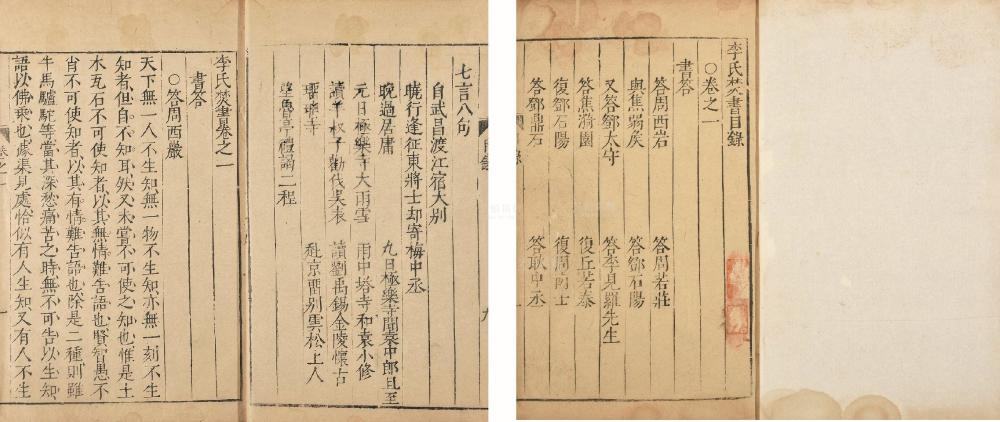 李氏焚書目錄
○卷之一
書答
答周西岩 答周若莊
與焦弱矦 答鄧石陽
又答鄧太守 答李見羅先生
答焦漪園 復丘若泰
復鄧石陽 復周南士
答鄧鼎石 答耿中丞
七言八句
自武昌渡江宿大别
曉行逢征東將士却寄梅中丞
晚過居庸 九日極樂寺聞袁中郎且至
元日極樂寺大雨雪 雨中塔寺和袁小修
讀羊叔子勸伐吳表 讀劉禹錫金陵懷古
璢璃寺 赴京留别雲松上人
望魯亭禮謁二程
李氏焚書卷之一
書答
○答周西巖
天下無一人不生知無一物不生知亦無一刻不生
知者但自不知耳然又未嘗不可使之知也惟是土
木瓦石不可使知者以其無情難告語也賢智愚不
肖不可使知者以其有情難告語也除是二種則雖
牛馬驢駝等當其深愁痛苦之時無不可告以生知
語以佛乘也據渠見處恰似有人生知又有人不生